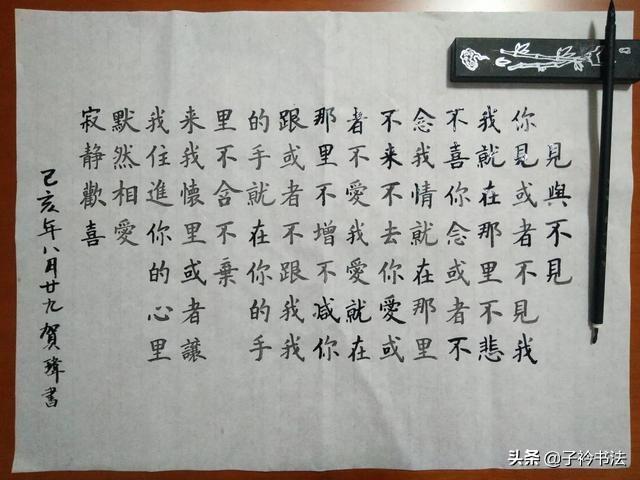 見與不見
你見或者不見我
我就在那里不悲
不喜你念或者不
念我情就在那里
不来不去你愛或
者不愛我愛就在
那里不增不减你
跟或者不跟我我
的手就在你的手
里不舍不棄
来我懷里或者讓
我住進你的心里
默然相愛
寂静歡喜
己亥年八月廿九賀瑋書
头条@子衿书法